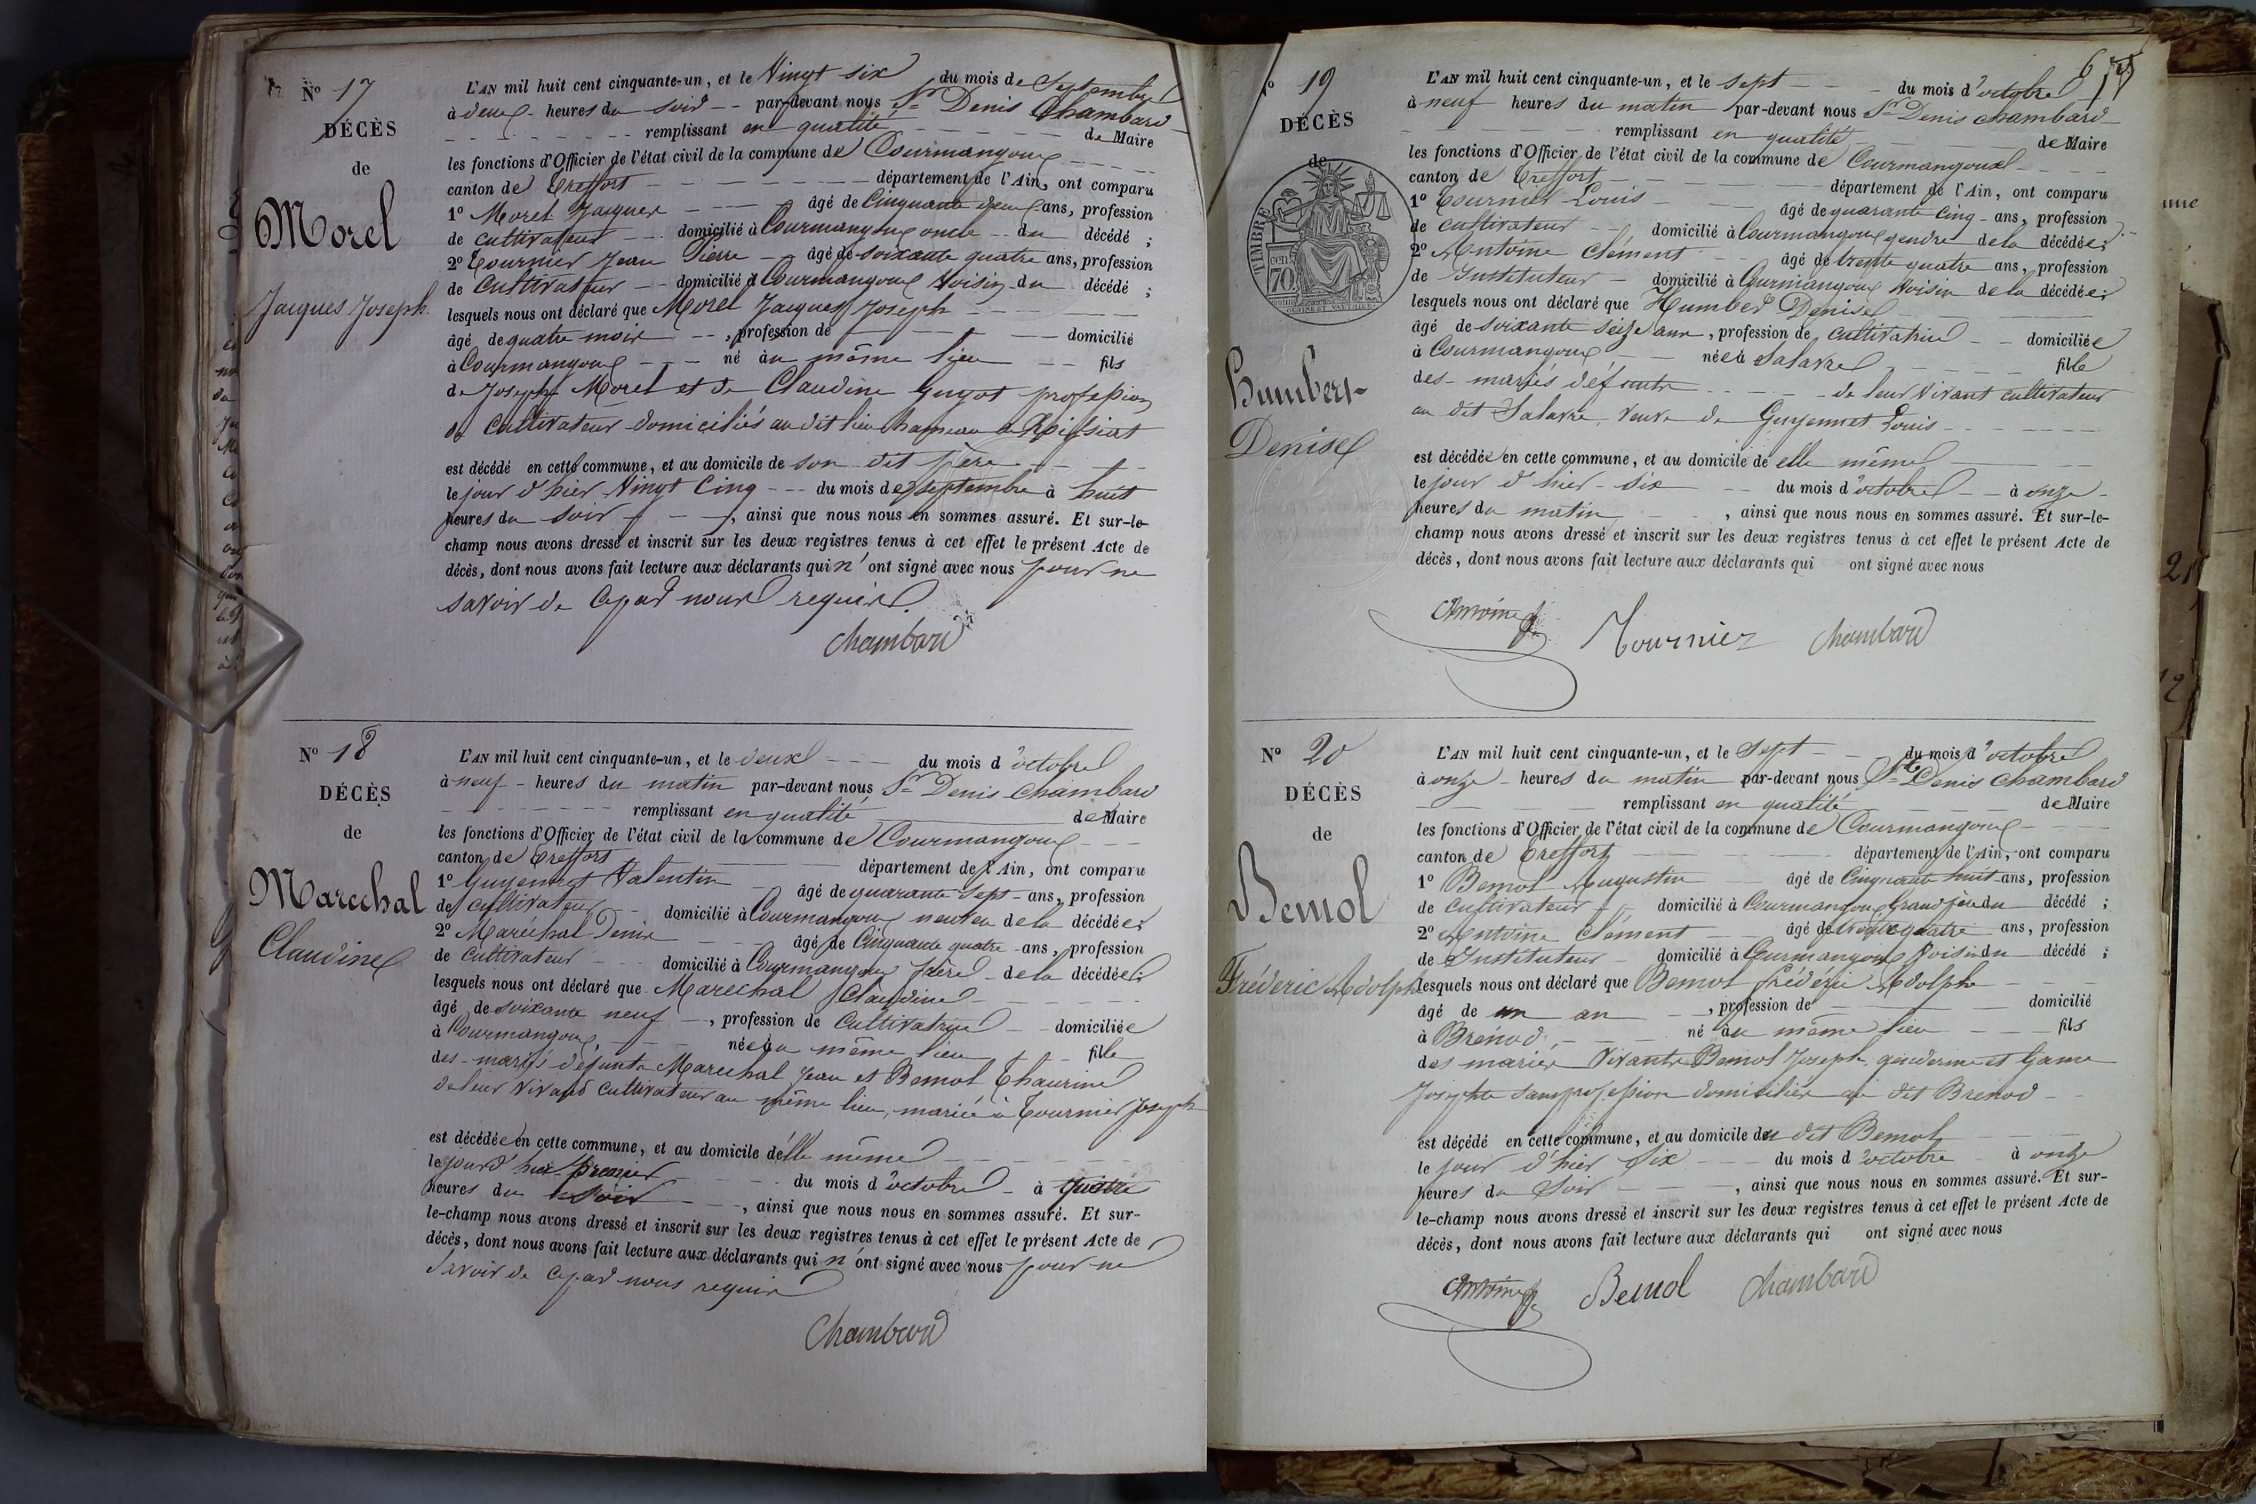 N° 17
DÉCÈS
de
Morel
Jacques Joseph
L'AN mil huit cent cinquante-un, et le Vingt six du mois de Septembre
à deux heures du soir par-devant nous Sr Denis Chambard
remplissant en qualité de Maire
les fonctions d'Officier de l'état civil de la commune de Courmangoux
canton de Treffort département de l'Ain, ont comparu
1° Morel Jacques âgé de Cinquante deux ans, profession
de cultivateur domicilié à Courmangoux oncle du décédé ;
2° Tournier Jean Pierre âgé de soixante quatre ans, profession
de Cultivateur domicilié à Courmangoux Voisin du décédé ;
lesquels nous ont déclaré que Morel Jacques Joseph
âgé de quatre mois , profession de domicilié
à Courmangoux né au même lieu fils
de Joseph Morel et de Claudine Guyot profession
de Cultivateur domiciliés au dit lieu hameau de Roissiat
est décédé en cette commune, et au domicile de son dit père
le jour d'hier Vingt Cinq du mois de septembre à huit
heures du soir , ainsi que nous nous en sommes assuré. Et sur-le-
champ nous avons dressé et inscrit sur les deux registres tenus à cet effet le présent Acte de
décès, dont nous avons fait lecture aux déclarants qui n'ont signé avec nous pour ne
savoir de ce par nous requis.
Chambard
N° 18
DÉCÈS
de
Marechal
Claudine
L'AN mil huit cent cinquante-un, et le deux du mois d'octobre
à neuf heures du matin par-devant nous Sr Denis Chambard
remplissant en qualité de Maire
les fonctions d'Officier de l'état civil de la commune de Courmangoux
canton de Treffort département de l'Ain, ont comparu
1° Guyennet Valentin âgé de quarante sept ans, profession
de cultivateur domicilié à Courmangoux neveu de la décédée ;
2° Maréchal Denis âgé de Cinquante quatre ans, profession
de cultivateur domicilié à Courmangoux frère de la décédée ;
lesquels nous ont déclaré que Marechal Claudine
âgé de soixante neuf , profession de Cultivatrice domiciliée
à Courmangoux née au même lieu fille
des mariés défunts Marechal Jean et Bemol Thaurine
de leur vivant Cultivateur au même lieu, mariée à Tournier Joseph
est décédée en cette commune, et au domicile d'elle même
le jour d'hier premier du mois d'octobre à quatre
heures du soir , ainsi que nous nous en sommes assuré. Et sur-
le-champ nous avons dressé et inscrit sur les deux registres tenus à cet effet le présent Acte de
décès, dont nous avons fait lecture aux déclarants qui n'ont signé avec nous pour ne
savoir de ce par nous requis
Chambard
6
N° 19
DÉCÈS
de
TIMBRE
70
Humbert
Denise
L'AN mil huit cent cinquante-un, et le sept du mois d'octobre
à neuf heures du matin par-devant nous Sr Denis Chambard
remplissant en qualité de Maire
les fonctions d'Officier de l'état civil de la commune de Courmangoux
canton de Treffort département de l'Ain, ont comparu
1° Tournier Louis âgé de quarante Cinq ans, profession
de cultivateur domicilié à Courmangoux gendre de la décédée ;
2° Antoine Clément âgé de trente quatre ans, profession
de Instituteur domicilié à Courmangoux Voisin de la décédée ;
lesquels nous ont déclaré que Humbert Denise
âgé de soixante seize ans , profession de cultivatrice domiciliée
à Courmangoux née à Salavre fille
des mariés défunts de leur Vivant cultivateur
au dit Salavre, veuve de Guyennet Louis
est décédée en cette commune, et au domicile de elle même
le jour d'hier six du mois d'octobre à onze
heures du matin , ainsi que nous nous en sommes assuré. Et sur-le-
champ nous avons dressé et inscrit sur les deux registres tenus à cet effet le présent Acte de
décès, dont nous avons fait lecture aux déclarants qui ont signé avec nous
Antoine Tournier Chambard
N° 20
DÉCÈS
de
Bemol
Fréderic Adolphe
L'AN mil huit cent cinquante-un, et le Sept du mois d'octobre
à onze heures du matin par-devant nous Sr Denis Chambard
remplissant en qualité de Maire
les fonctions d'Officier de l'état civil de la commune de Courmangoux
canton de Treffort département de l'Ain, ont comparu
1° Bemol Augustin âgé de Cinquante huit ans, profession
de Cultivateur domicilié à Courmangoux Grand père du décédé ;
2° Antoine Clément âgé de trente quatre ans, profession
de Instituteur domicilié à Courmangoux Voisin du décédé ;
lesquels nous ont déclaré que Bemol Frédéric Adolphe
âgé de un an , profession de domicilié
à Brénod né au même lieu fils
des mariés Vivants Bemol Joseph gendarme et Game
Josephte sans profession domiciliés au dit Brenod
est décédé en cette commune, et au domicile du dit Bemol
le jour d'hier Six du mois d'octobre à onze
heures du Soir , ainsi que nous nous en sommes assuré. Et sur-
le-champ nous avons dressé et inscrit sur les deux registres tenus à cet effet le présent Acte de
décès, dont nous avons fait lecture aux déclarants qui ont signé avec nous
Antoine Bemol Chambard